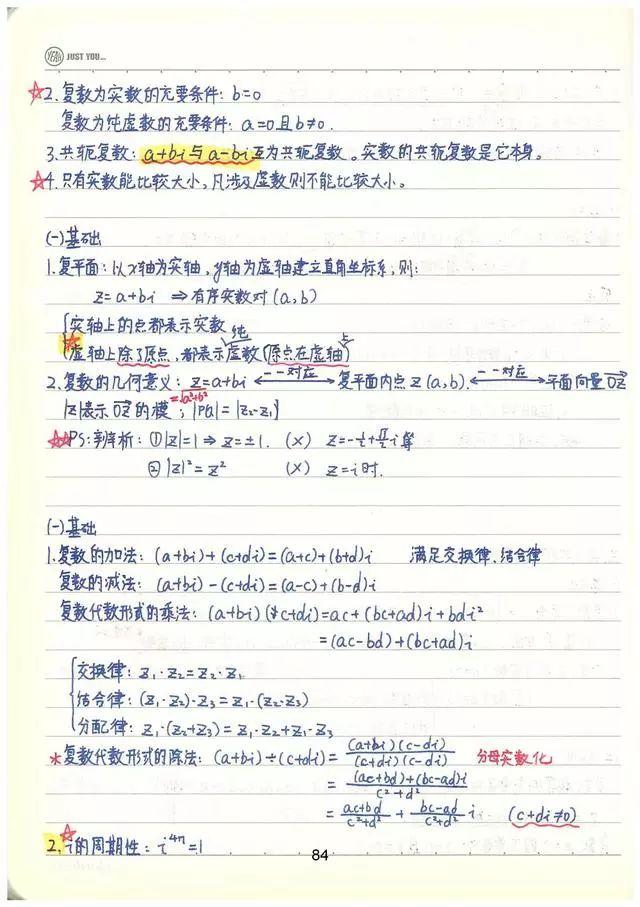 YEAH JUST YOU...
☆2. 复数为实数的充要条件: b=0
复数为纯虚数的充要条件: a=0且b≠0.
3. 共轭复数: a+bi与a-bi互为共轭复数。实数的共轭复数是它本身。
☆4. 只有实数能比较大小,凡涉及虚数则不能比较大小。
(一)基础
1. 复平面: 以x轴为实轴, y轴为虚轴建立直角坐标系, 则:
z=a+bi ⇒有序实数对(a,b)
{实轴上的点都表示实数
☆虚轴上除了原点,都表示纯虚数(原点在虚轴上)
2. 复数的几何意义: z=a+bi ←一一对应→ 复平面内点Z(a,b) ←一一对应→ 平面向量OZ
|z|=√a²+b²表示OZ的模; |PQ|=|z₂-z₁|
☆☆PS: 辨析: ①|z|=1⇒z=±1. (×) z=-½+√3/2 i等
②|z|²=z² (×) z=i时.
(一)基础
1. 复数的加法: (a+bi)+(c+di)=(a+c)+(b+d)i 满足交换律、结合律
复数的减法: (a+bi)-(c+di)=(a-c)+(b-d)i
复数代数形式的乘法: (a+bi)(c+di)=ac+(bc+ad)i+bdi²
=(ac-bd)+(bc+ad)i
{交换律: z₁·z₂=z₂·z₁
结合律: (z₁·z₂)·z₃=z₁·(z₂·z₃)
分配律: z₁·(z₂+z₃)=z₁·z₂+z₁·z₃
*复数代数形式的除法: (a+bi)÷(c+di)=(a+bi)(c-di)/(c+di)(c-di) 分母实数化
=(ac+bd)+(bc-ad)i/c²+d²
=ac+bd/c²+d²+bc-ad/c²+d² i (c+di≠0)
☆2. i的周期性: i⁴ⁿ=1
84